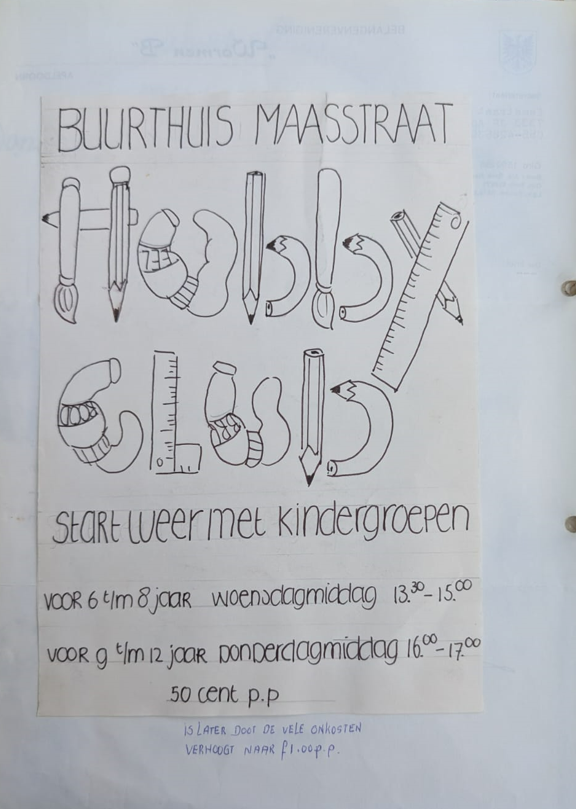 BELANGENVERENIGING
BUURTHUIS MAASSTRAAT
Hobby
CLUb
START WEER MET kindergroepen
VOOR 6 t/m 8 jaar woensdagmiddag 13.30-15.00
VOOR 9 t/m 12 jaar DonDerdagmiddag 16.00-17.00
50 cent p.p
IS LATER DOOT DE VELE ONKOSTEN
VERHOOGT NAAR f1.00 p.p.